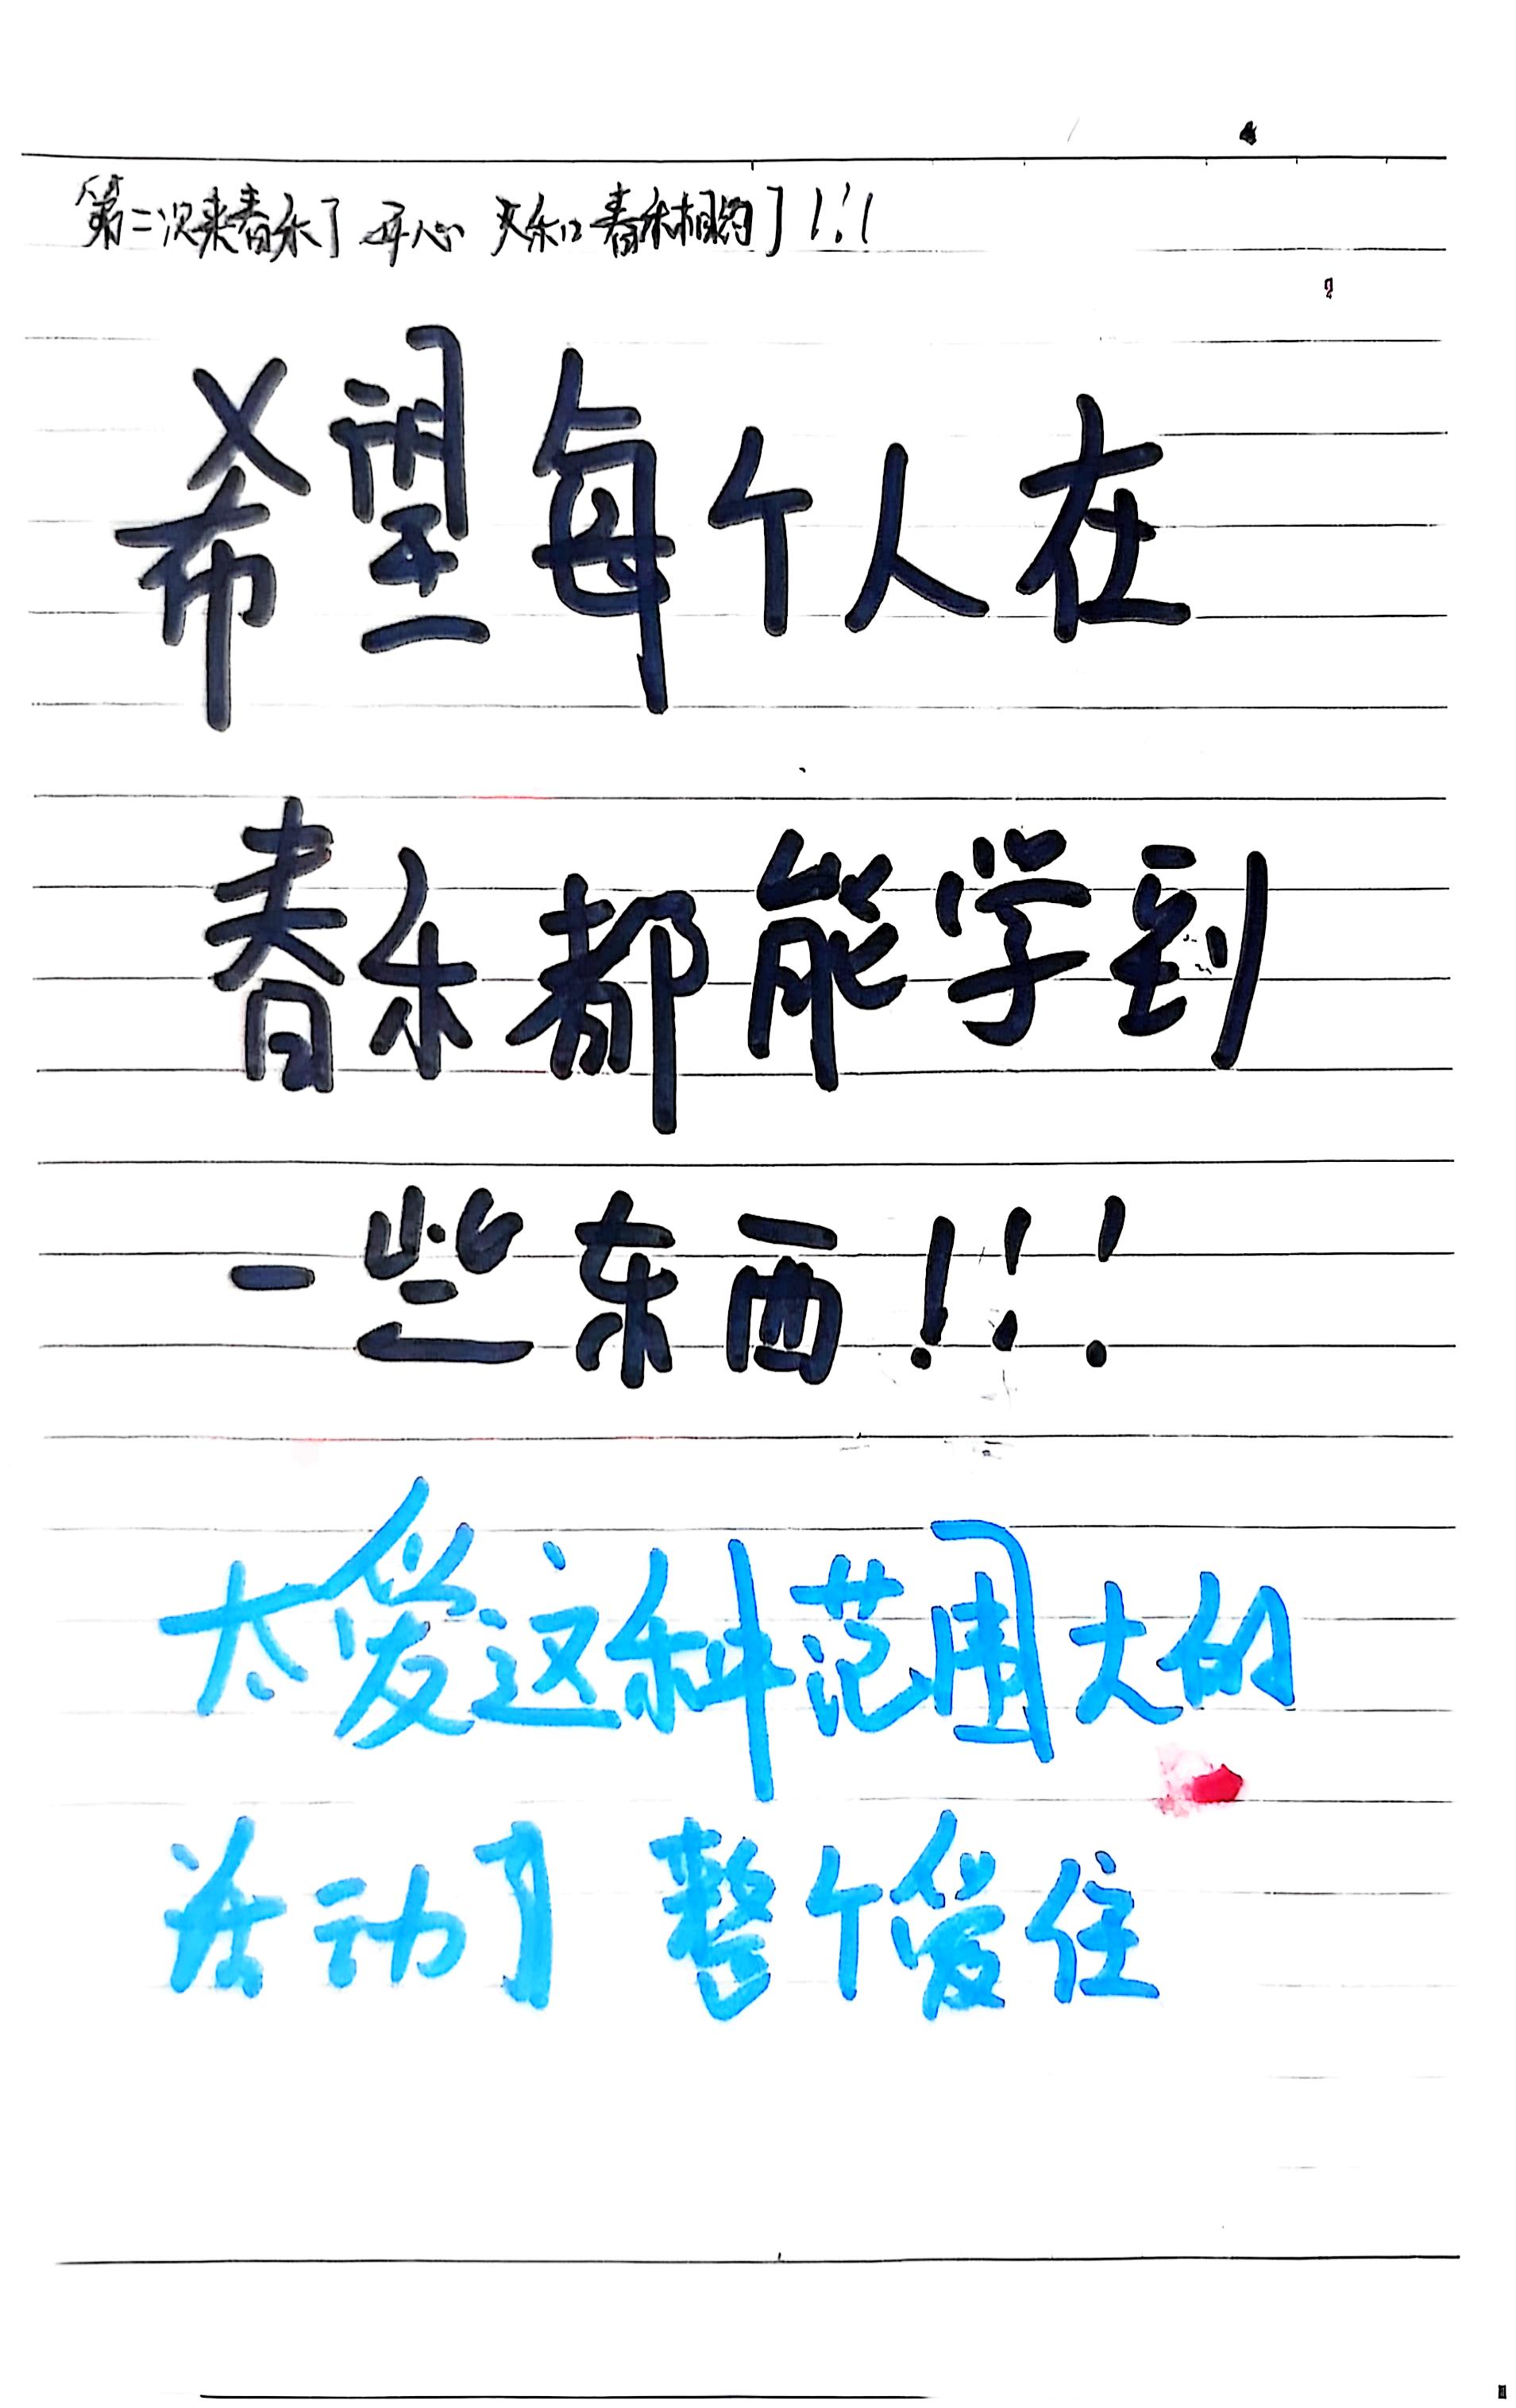 第二次来春禾了 开心 又和春禾相约了!!!
希望每个人在
春禾都能学到
一些东西!!!
太爱这种范围大的
活动了 整个爱住